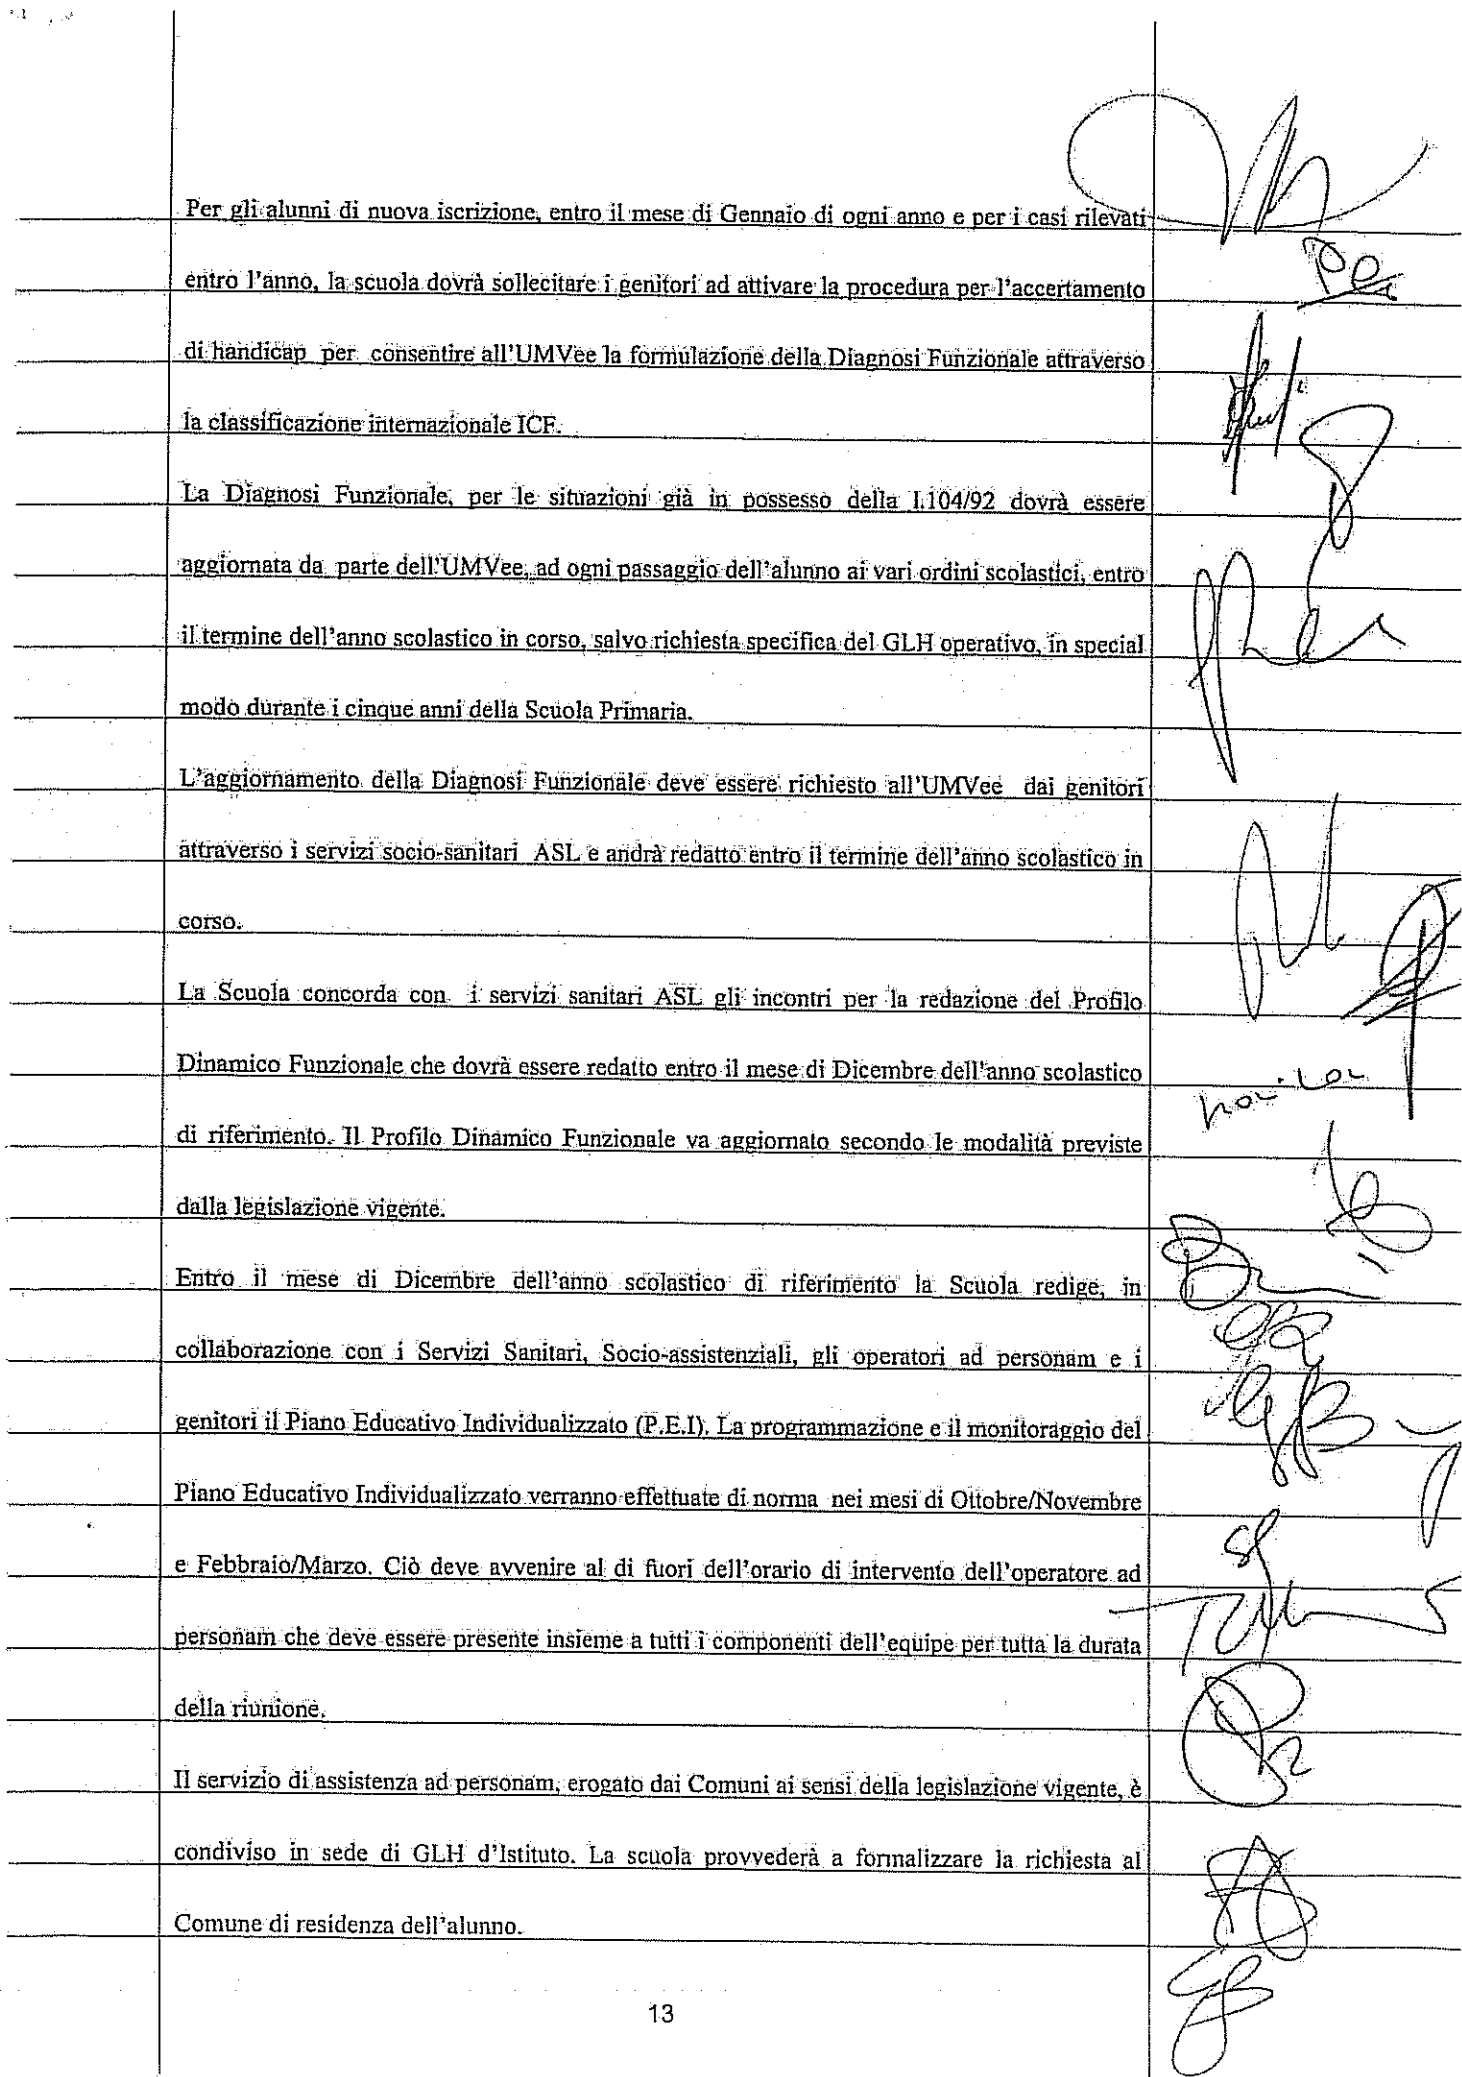 Per gli alunni di nuova iscrizione, entro il mese di Gennaio di ogni anno e per i casi rilevati
entro l'anno, la scuola dovrà sollecitare i genitori ad attivare la procedura per l'accertamento
di handicap per consentire all'UMVee la formulazione della Diagnosi Funzionale attraverso
la classificazione internazionale ICF.
La Diagnosi Funzionale, per le situazioni già in possesso della l.104/92 dovrà essere
aggiornata da parte dell'UMVee, ad ogni passaggio dell'alunno ai vari ordini scolastici, entro
il termine dell'anno scolastico in corso, salvo richiesta specifica del GLH operativo, in special
modo durante i cinque anni della Scuola Primaria.
L'aggiornamento della Diagnosi Funzionale deve essere richiesto all'UMVee dai genitori
attraverso i servizi socio-sanitari ASL e andrà redatto entro il termine dell'anno scolastico in
corso.
La Scuola concorda con i servizi sanitari ASL gli incontri per la redazione del Profilo
Dinamico Funzionale che dovrà essere redatto entro il mese di Dicembre dell'anno scolastico
di riferimento. Il Profilo Dinamico Funzionale va aggiornato secondo le modalità previste
dalla legislazione vigente.
Entro il mese di Dicembre dell'anno scolastico di riferimento la Scuola redige, in
collaborazione con i Servizi Sanitari, Socio-assistenziali, gli operatori ad personam e i
genitori il Piano Educativo Individualizzato (P.E.I). La programmazione e il monitoraggio del
Piano Educativo Individualizzato verranno effettuate di norma nei mesi di Ottobre/Novembre
e Febbraio/Marzo. Ciò deve avvenire al di fuori dell'orario di intervento dell'operatore ad
personam che deve essere presente insieme a tutti i componenti dell'equipe per tutta la durata
della riunione.
Il servizio di assistenza ad personam, erogato dai Comuni ai sensi della legislazione vigente, è
condiviso in sede di GLH d'Istituto. La scuola provvederà a formalizzare la richiesta al
Comune di residenza dell'alunno.
13